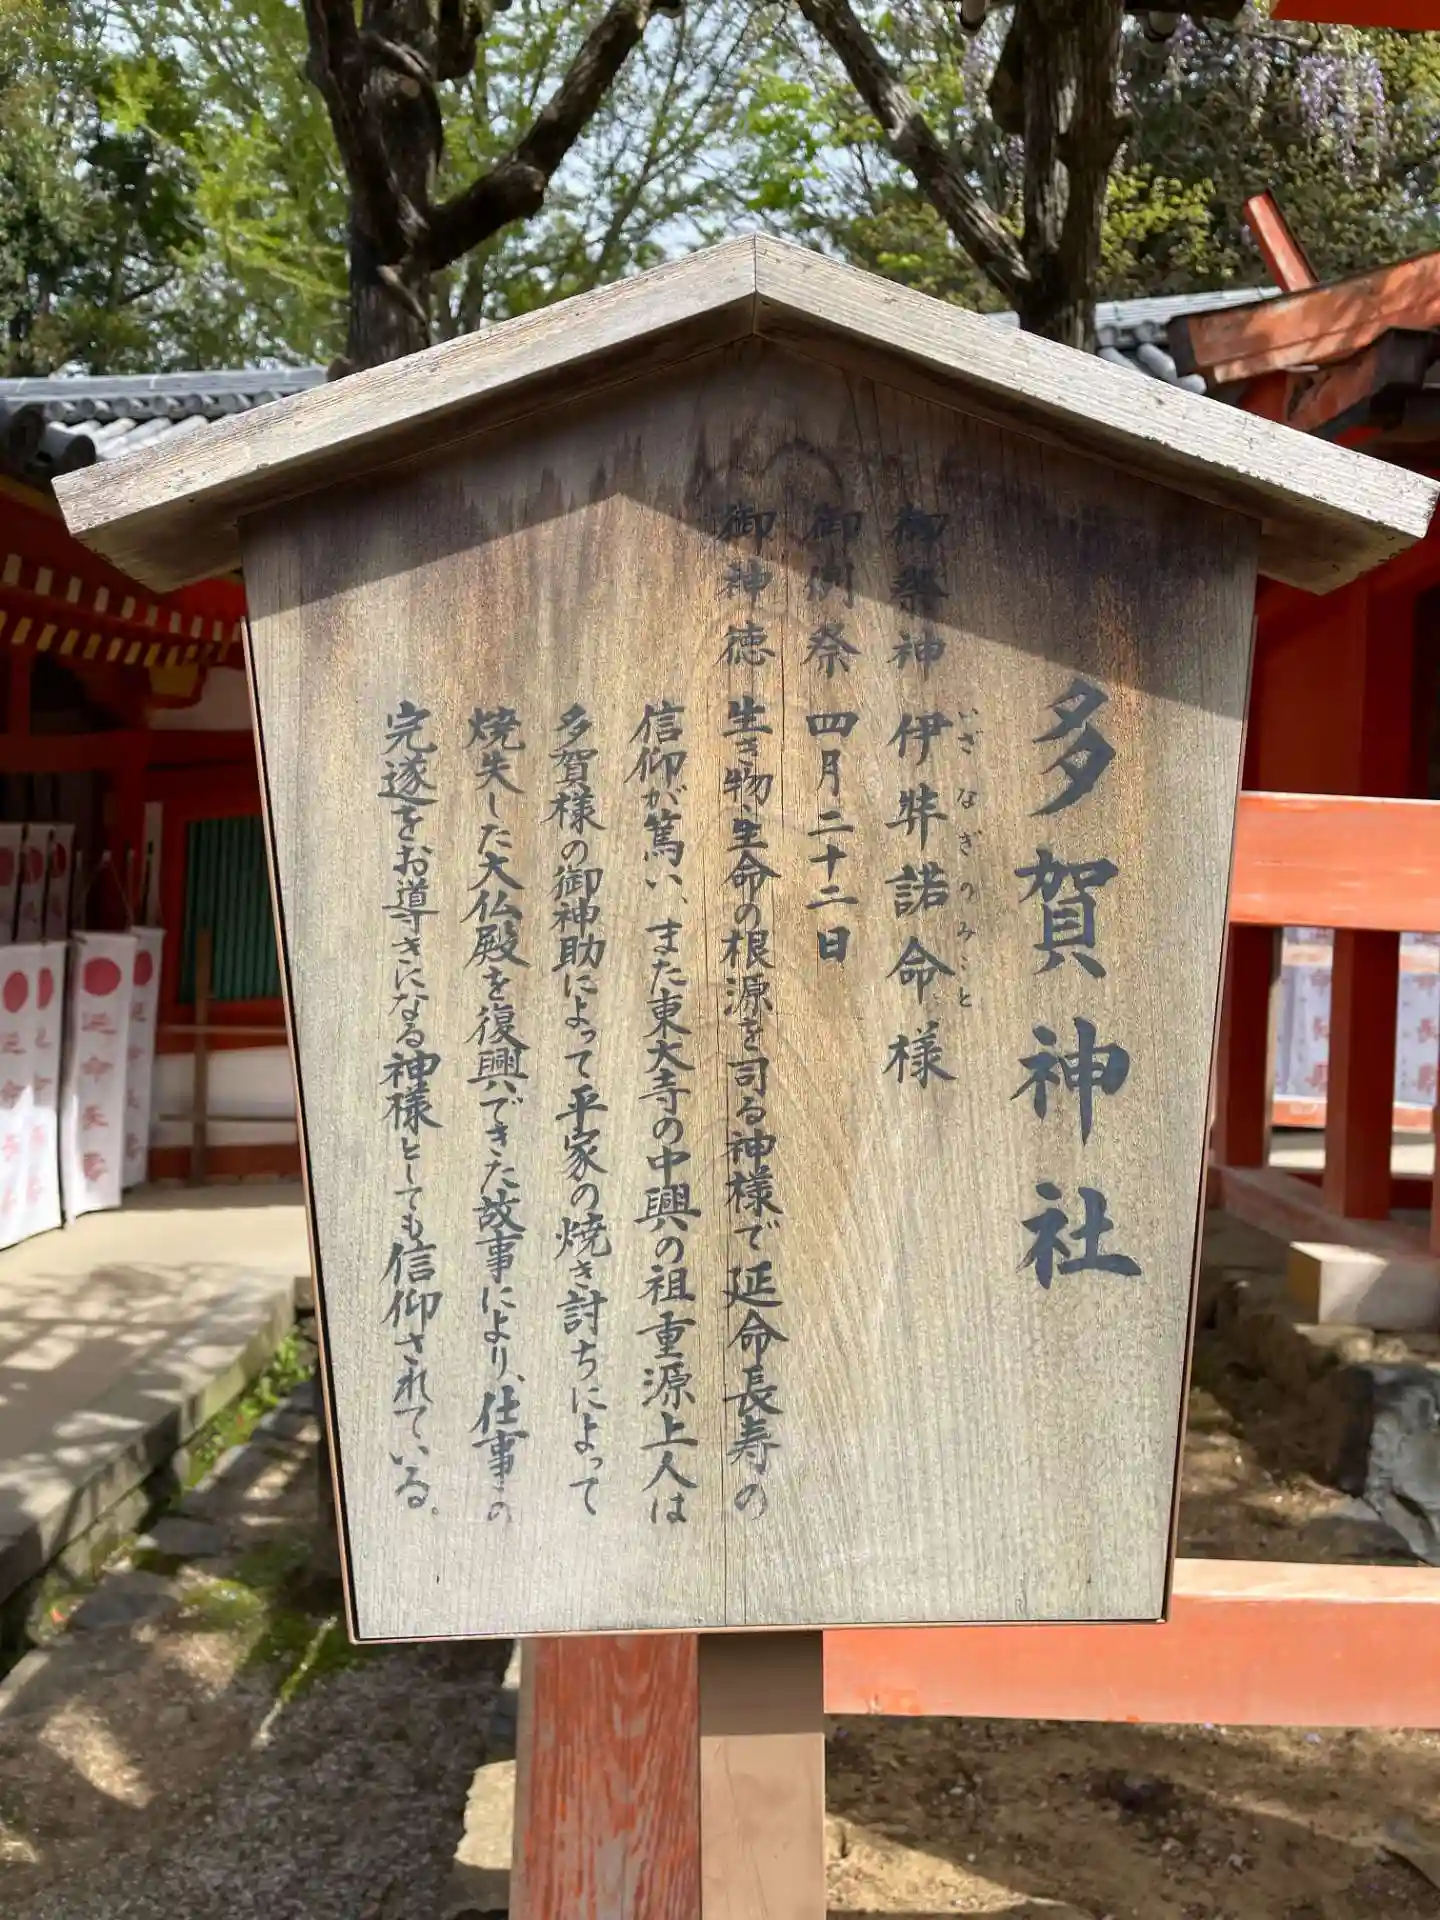 多賀神社
御祭神 伊弉諾命様
いざなぎのみこと
御例祭 四月二十二日
御神徳 生き物・生命の根源を司る神様で延命長寿の
信仰が篤い、また東大寺の中興の祖重源上人は
多賀様の御神助によって平家の焼き討ちによって
焼失した大仏殿を復興できた故事により、仕事の
完遂をお導きになる神様としても信仰されている。